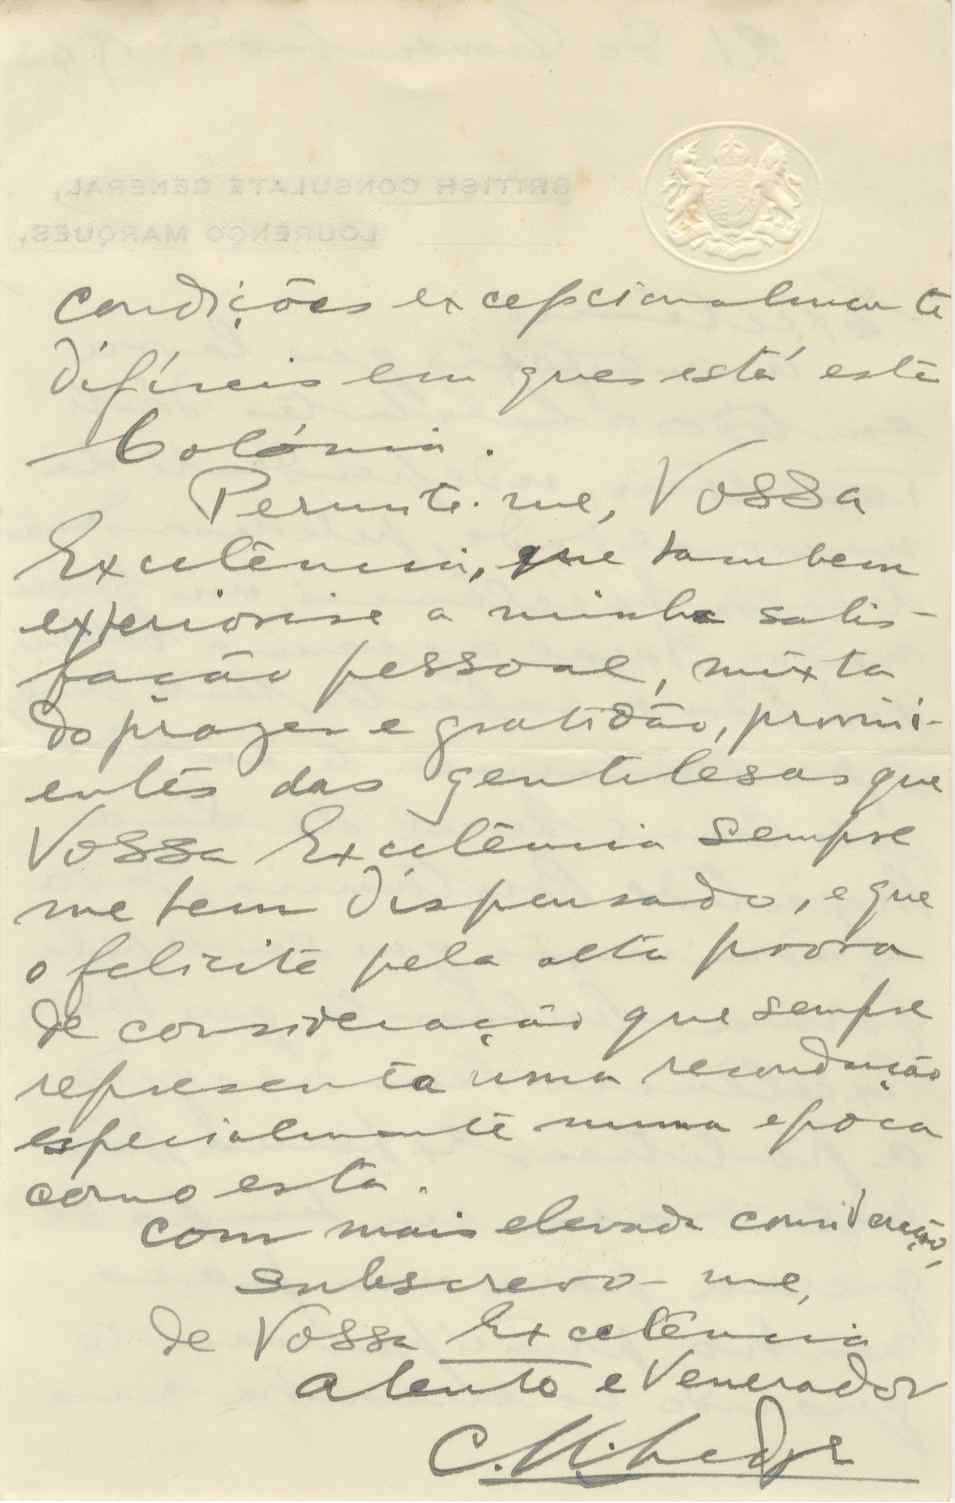 BRITISH CONSULATE GENERAL,
LOURENÇO MARQUES.
condições excepcionalmente
difíceis em que está este
Colónia.
Permite-me, Vossa
Excelência, que tambem
exteriorise a minha satis-
fação pessoal, mixta
do prazer e gratidão, proveni-
entes das gentilesas que
Vossa Excelência sempre
me tem dispensado, e que
o felicite pela alta prova
de consideração que sempre
representa uma recondução
especialmente numa epoca
como esta.
Com mais elevada consideração,
subscrevo-me,
de Vossa Excelência
atento e Venerador